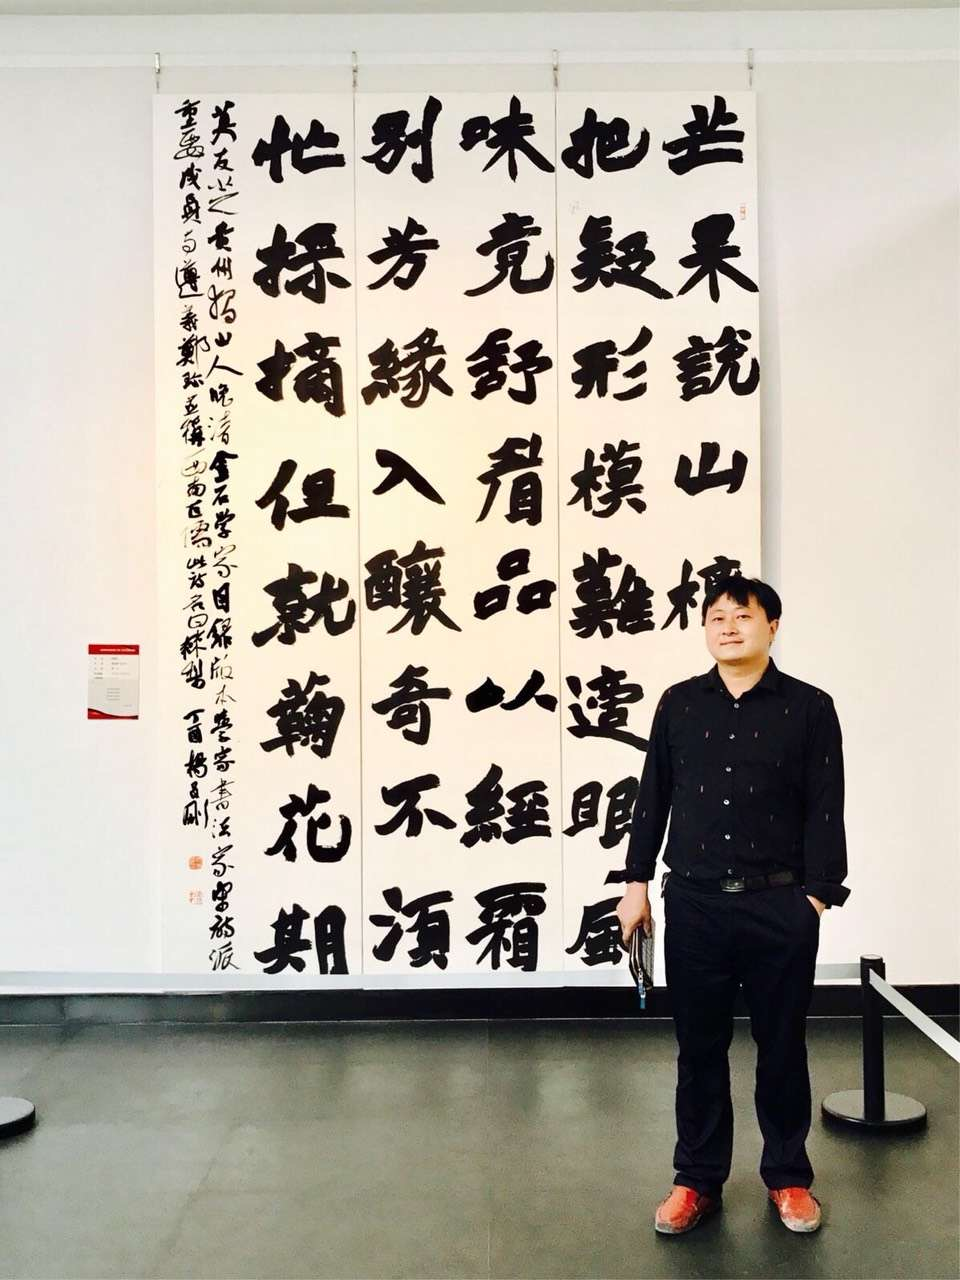 芒果說山
把疑形模難眼風
味竟舒眉品以經霜
別芳緣入釀奇不須
忙採摘但就鞠花期
莫友芝贵州獨山人晚清金石学家目録版本学家書法家宋詩派
重要成員与遵義鄭珍並稱西南巨儒此詩名曰梨 丁酉楊昌剛